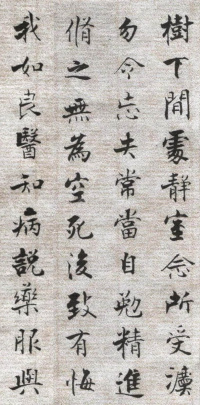 樹下間處靜室念所受灋
勿令忘失常當自勉精進
脩之無為空死後致有悔
我如良醫知病說藥服與